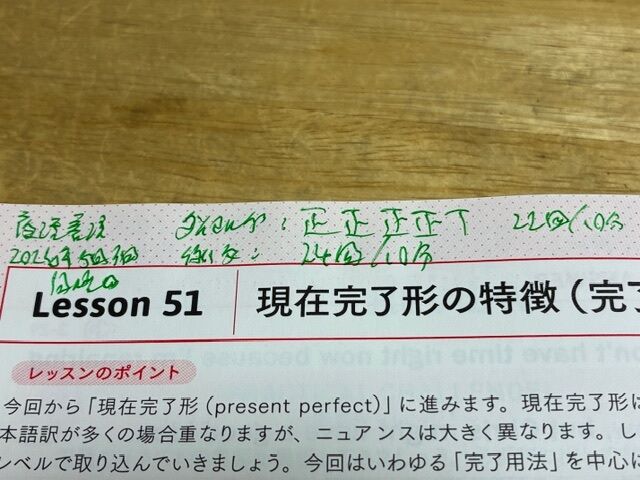 正正正正丅 22回/10分
24回/10分
Lesson 51 現在完了形の特徴（完了
n't have time right now because I'm
レッスンのポイント
今回から「現在完了形（present perfect）」に進みます。現在完了形は
本語訳が多くの場合重なりますが、ニュアンスは大きく異なります。し
レベルで取り込んでいきましょう。今回はいわゆる「完了用法」を中心に